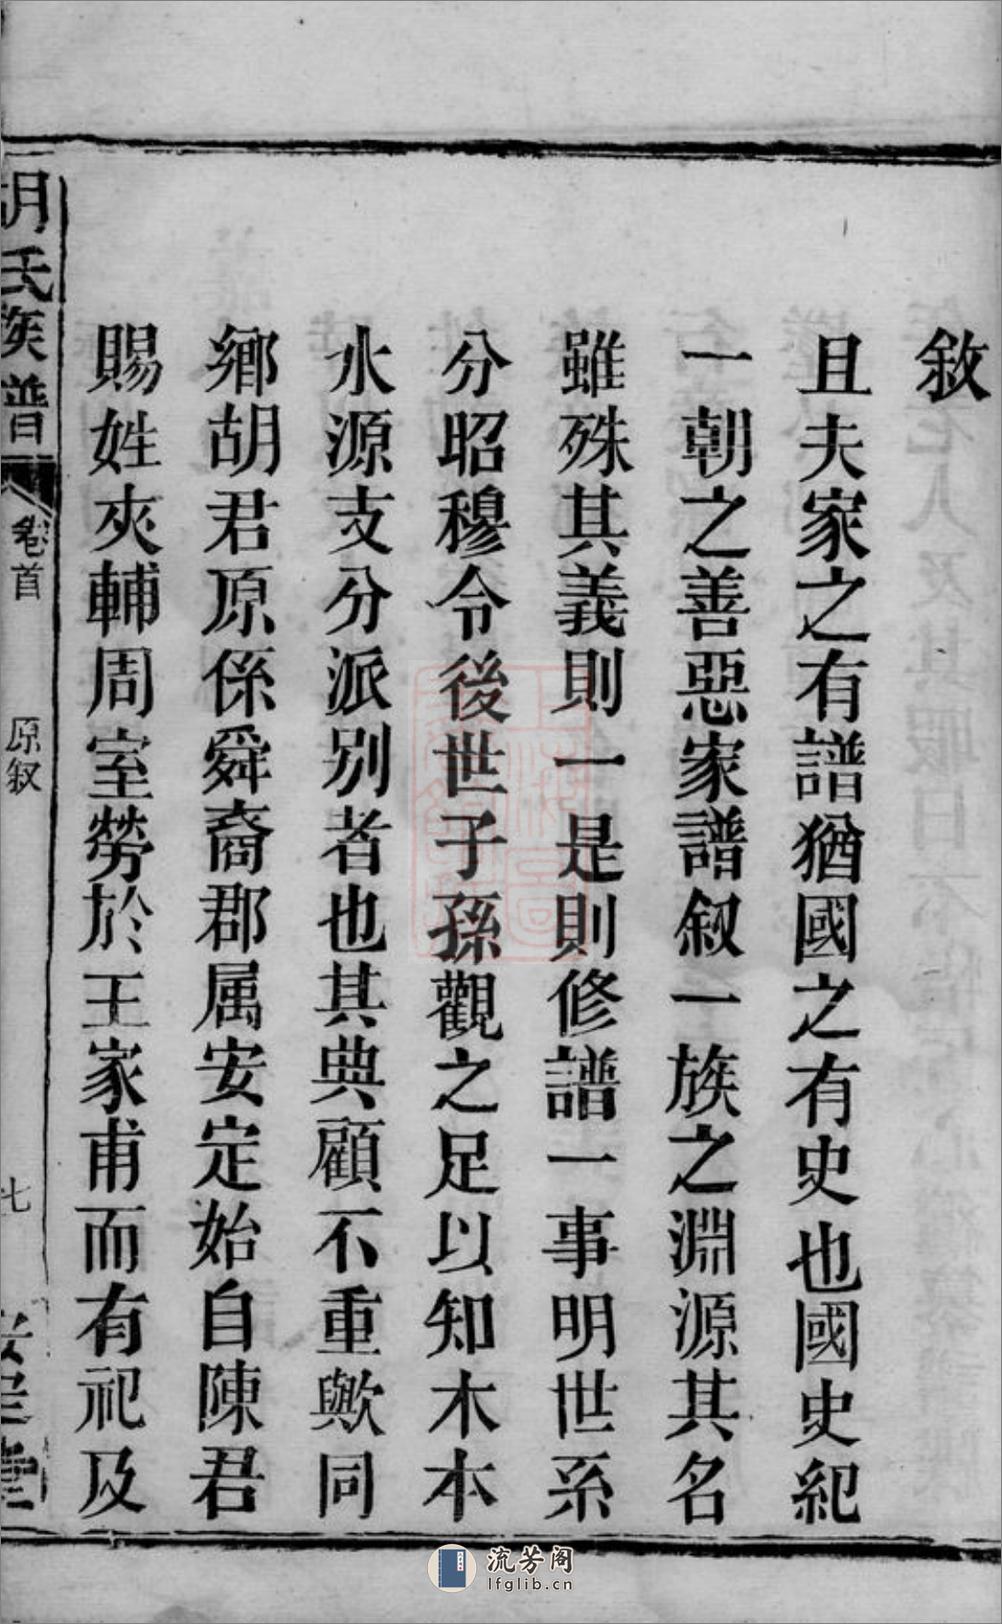 敘
且夫家之有譜猶國之有史也國史紀
一朝之善惡家譜叙一族之淵源其名
雖殊其義則一是則修譜一事明世系
分昭穆令後世子孫觀之足以知木本
水源支分派别者也其典顧不重歟同
鄉胡君原係舜裔郡属安定始自陳君
賜姓夾輔周室勞於王家甫而有祀及
胡氏族普
卷首
原叙
七
安定堂
流芳阁
lfglib.cn